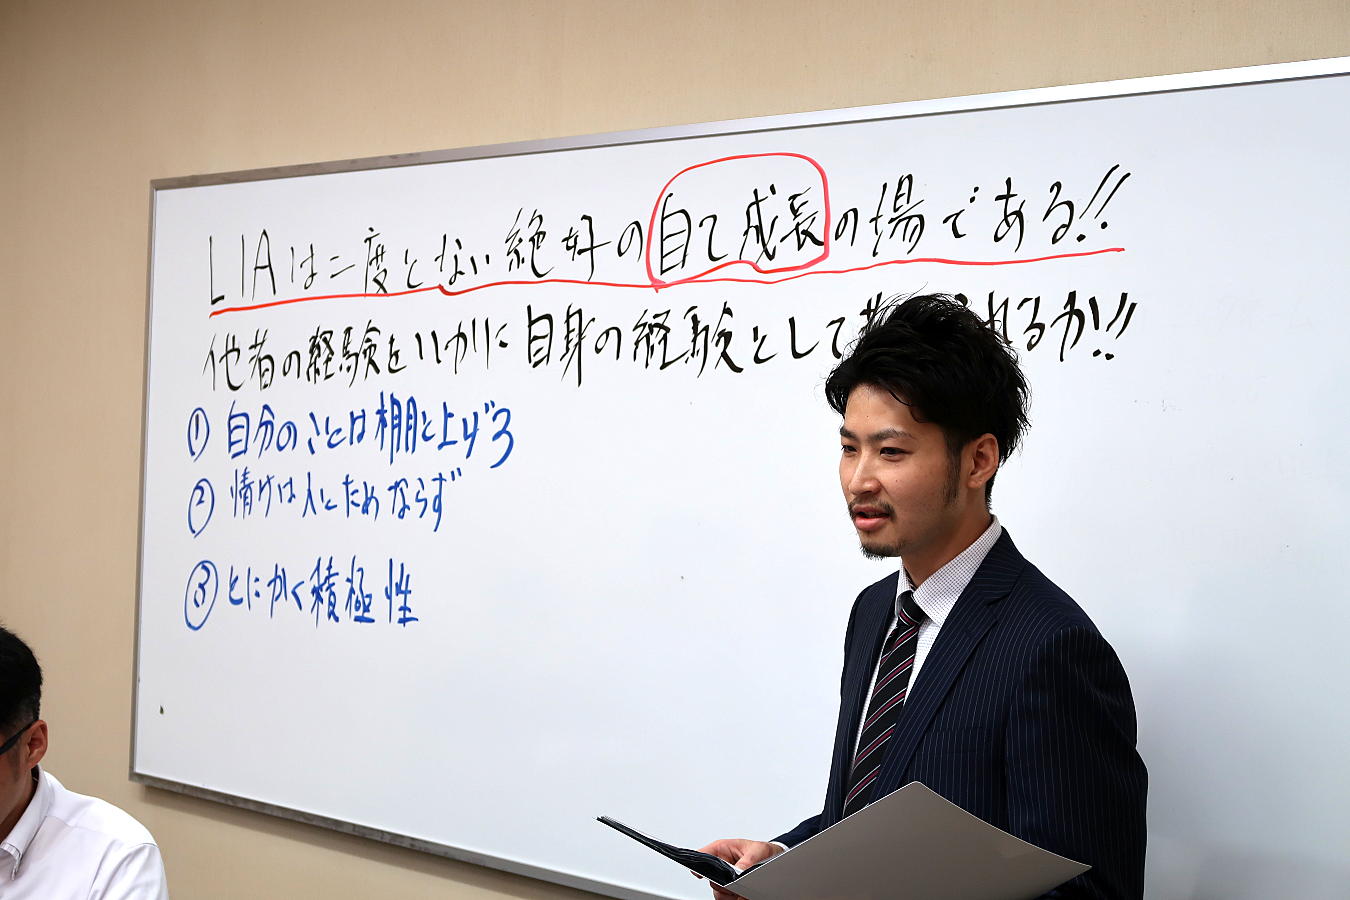 LIAは二度とない絶好の自己成長の場である!!
他者の経験をいかに自身の経験として れるか!!
① 自分のことは棚に上げろ
② 情けは人にためならず
③ とにかく積極性